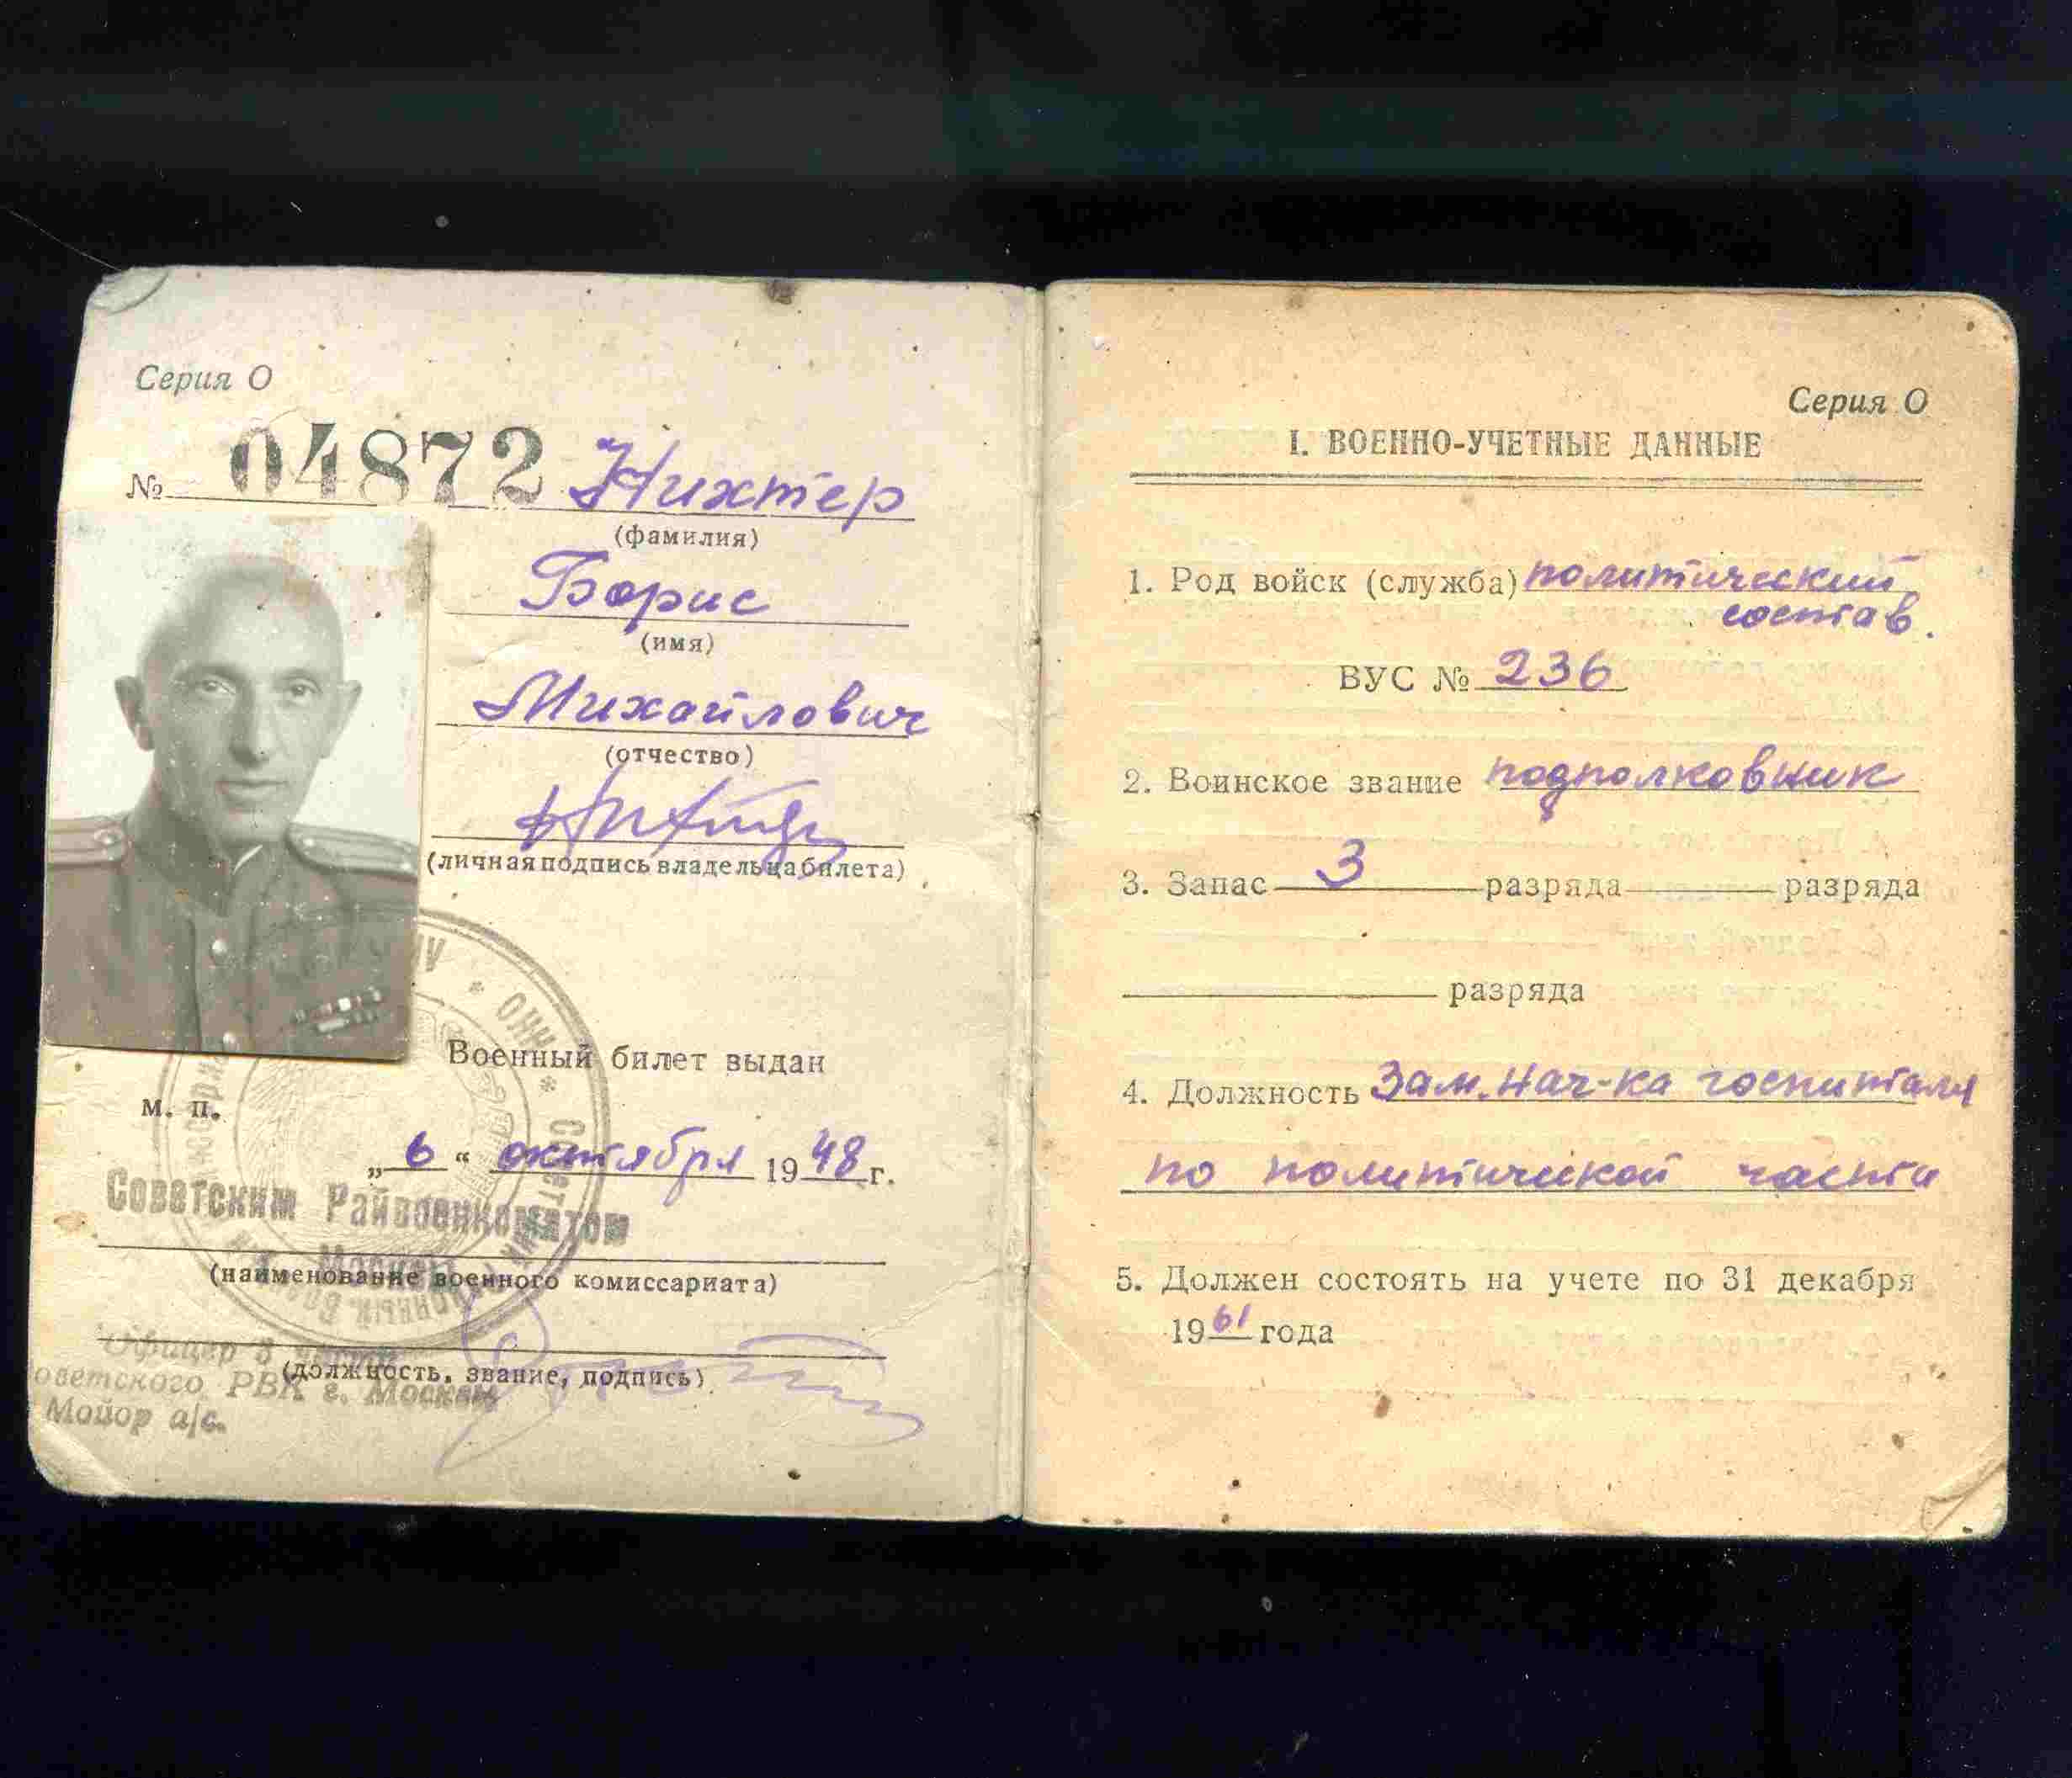 Серия О
№ 04872 Нихтер
(фамилия)
Борис
(имя)
Михайлович
(отчество)
(личная подпись владельца билета)
Военный билет выдан
м. п.
„6“ октября 1948 г.
Советским Райвоенкоматом
Москвы
(наименование военного комиссариата)
Офицер 3 части
(должность, звание, подпись)
Советского РВК г. Москвы
Майор а/с.
Серия О
I. ВОЕННО-УЧЕТНЫЕ ДАННЫЕ
1. Род войск (служба) политический
состав.
ВУС № 236
2. Воинское звание подполковник
3. Запас 3 разряда разряда
разряда
4. Должность Зам. нач-ка госпиталя
по политической части
5. Должен состоять на учете по 31 декабря
1961 года